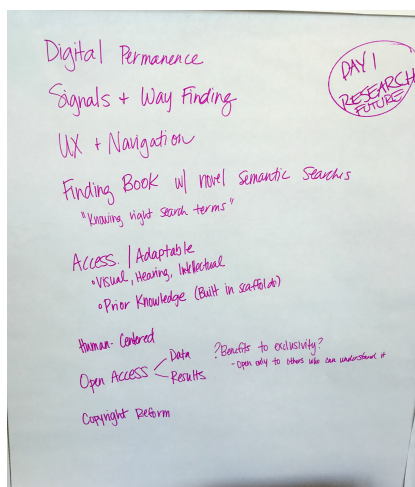 Digital Permanence
DAY 1
RESEARCH
FUTURE
Signals + Way Finding
UX + Navigation
Finding Book w/ novel Semantic Searches
"Knowing right search terms"
Access. / Adaptable
• Visual, Hearing, Intellectual
• Prior Knowledge (Built in scaffolds)
Human-Centered
Open Access
Data
Results
? Benefits to exclusivity?
- Open only to others who can understand it
Copyright Reform